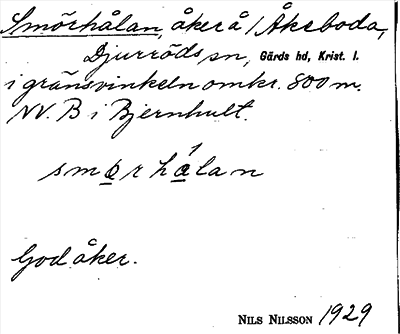 Smörhålan, åker å / Åkeboda,
Djurröds sn, Gärds hd, Krist. l.
i gränsvinkeln omkr. 800 m.
NV. B i Bjernhult.
smo̲r hå̲lan
God åker.
NILS NILSSON 1929